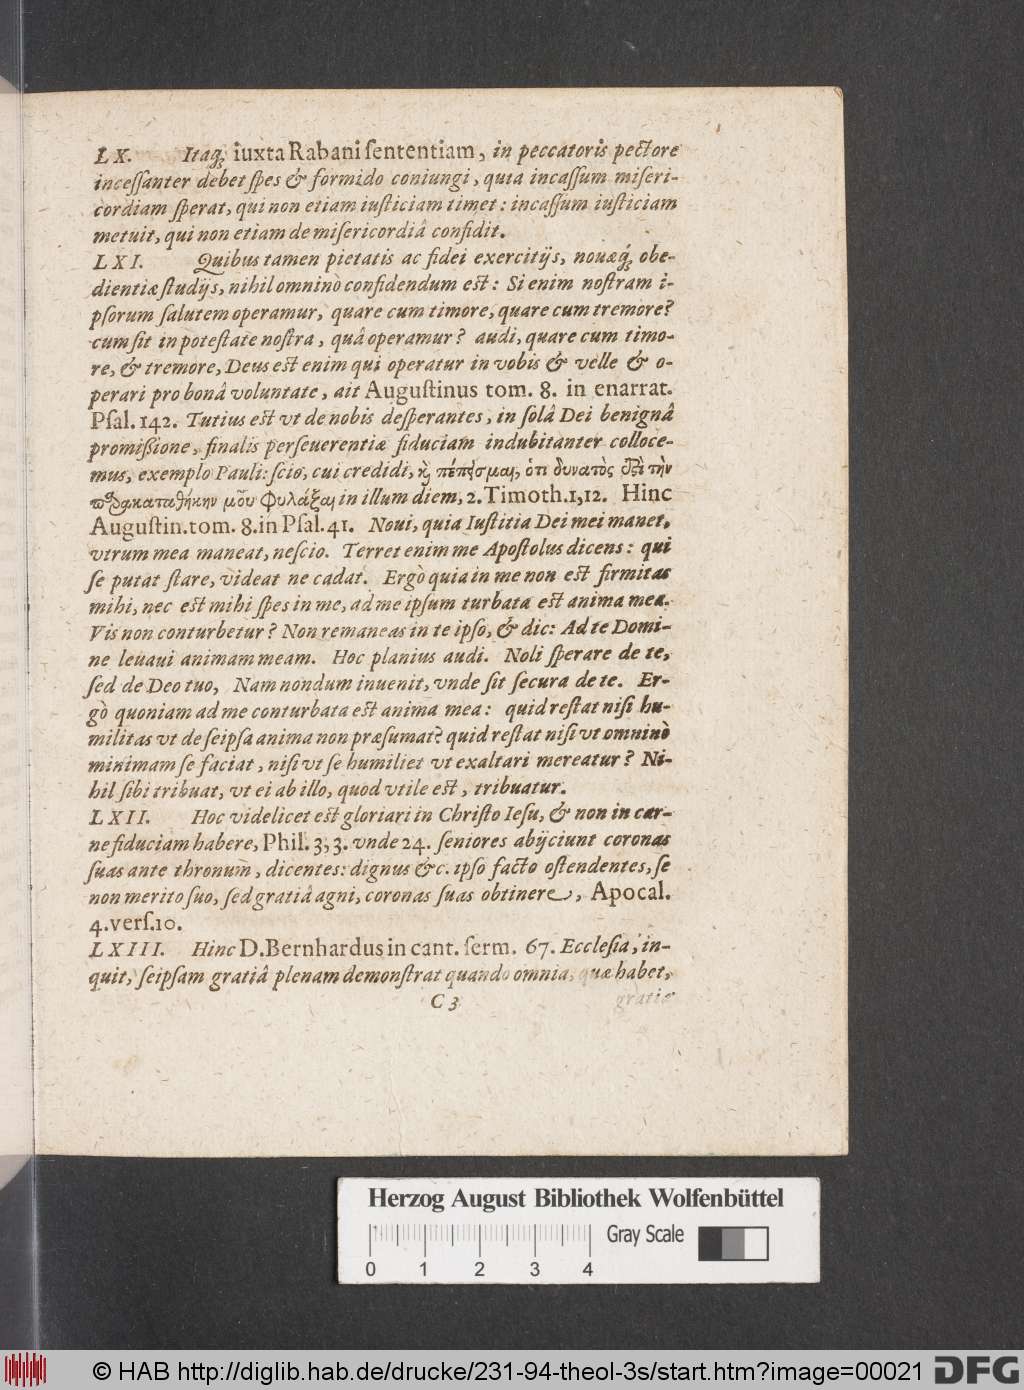 LX. Itaq; iuxta Rabani sententiam, in peccatoris pectore
incessanter debet spes & formido coniungi, quia incassum miseri-
cordiam sperat, qui non etiam iusticiam timet: incassum iusticiam
metuit, qui non etiam de misericordiâ confidit.
LXI. Quibus tamen pietatis ac fidei exercitijs, nouæq; obe-
dientiæ studijs, nihil omninò confidendum est: Si enim nostram i-
psorum salutem operamur, quare cum timore, quare cum tremore?
cum sit in potestate nostra, quâ operamur? audi, quare cum timo-
re, & tremore, Deus est enim qui operatur in vobis & velle & o-
perari pro bonâ voluntate, ait Augustinus tom. 8. in enarrat.
Psal. 142. Tutius est vt de nobis desperantes, in solâ Dei benignâ
promissione, finalis perseuerentiæ fiduciam indubitanter colloce-
mus, exemplo Pauli: scio, cui credidi, καὶ πέπεισμαι, ὅτι δυνατὸς ἐστὶ τὴν
παρακαταθήκην μοῦ φυλάξαι in illum diem, 2. Timoth. 1, 12. Hinc
Augustin. tom. 8. in Psal. 41. Noui, quia Iustitia Dei mei manet,
vtrum mea maneat, nescio. Terret enim me Apostolus dicens: qui
se putat stare, videat ne cadat. Ergò quia in me non est firmitas
mihi, nec est mihi spes in me, ad me ipsum turbata est anima mea.
Vis non conturbetur? Non remaneas in te ipso, & dic: Ad te Domi-
ne leuaui animam meam. Hoc planius audi. Noli sperare de te,
sed de Deo tuo, Nam nondum inuenit, vnde sit secura de te. Er-
gò quoniam ad me conturbata est anima mea: quid restat nisi hu-
militas vt de seipsa anima non præsumat? quid restat nisi vt omninò
minimam se faciat, nisi vt se humiliet vt exaltari mereatur? Ni-
hil sibi tribuat, vt ei ab illo, quod vtile est, tribuatur.
LXII. Hoc videlicet est gloriari in Christo Iesu, & non in car-
ne fiduciam habere, Phil. 3, 3. vnde 24. seniores abijciunt coronas
suas ante thronum, dicentes: dignus &c. ipso facto ostendentes, se
non merito suo, sed gratiâ agni, coronas suas obtinere, Apocal.
4. vers. 10.
LXIII. Hinc D. Bernhardus in cant. serm. 67. Ecclesia, in-
quit, seipsam gratiâ plenam demonstrat quando omnia, quæ habet,
C 3 gratiæ
Herzog August Bibliothek Wolfenbüttel
Gray Scale
0 1 2 3 4
© HAB http://diglib.hab.de/drucke/231-94-theol-3s/start.htm?image=00021 DFG